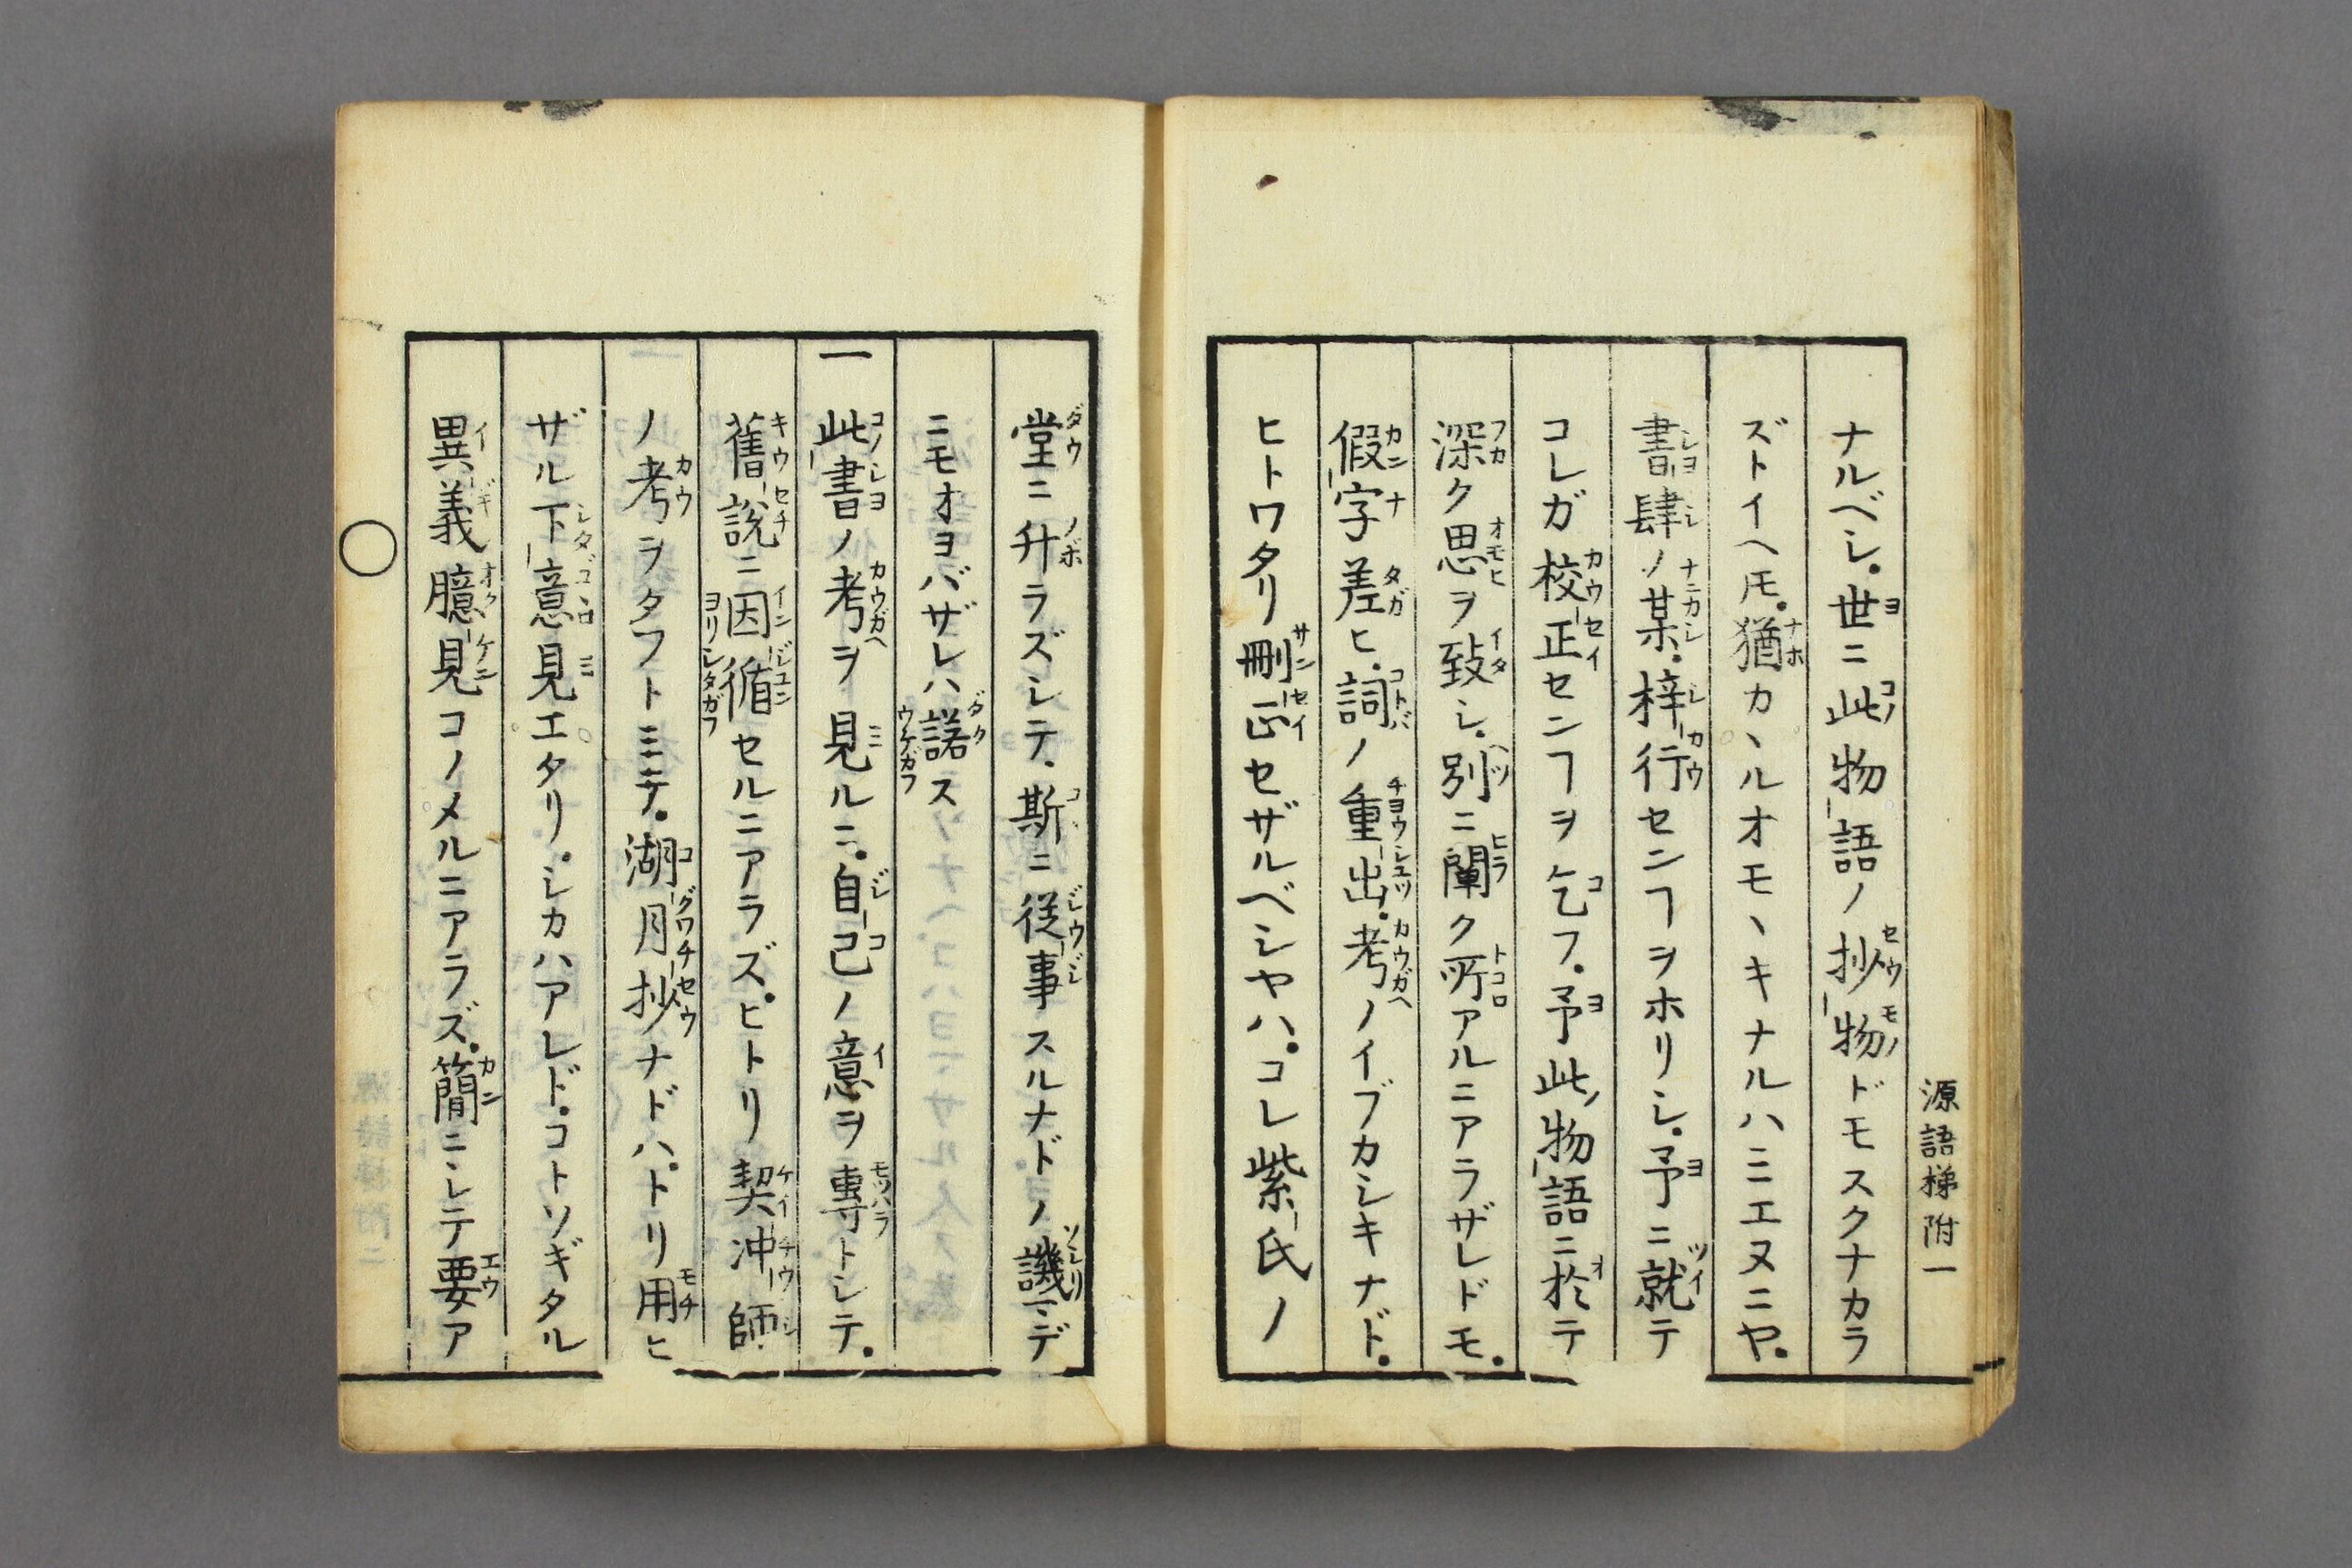 源語梯附一
ナルベシ。世ニ此物語ノ抄物ドモスクナカラ
ズトイヘ𪜈。猶カヽルオモヽキナルハミエヌニヤ。
書肆ノ某。梓行センヿヲホリシ。予ニ就テ
コレガ校正センヿヲ乞フ。予此物語ニ於テ
深ク思ヲ致シ。別ニ闡ク所アルニアラザレドモ。
假字差ヒ。詞ノ重出。考ノイブカシキナド。
ヒトワタリ刪正セザルベシヤハ。コレ紫氏ノ
堂ニ升ラズシテ。斯ニ従事スルナドノ譏マデ
ニモオヨバザレハ諾ス
一 此書ノ考ヲ見ルニ。自己ノ意ヲ專トシテ。
舊説ニ因循セルニアラズ。ヒトリ契冲師
ノ考ヲタフトミテ。湖月抄ナドハ。トリ用ヒ
ザル下意見エタリ。シカハアレド。コトソギタル
異義臆見コノメルニアラズ。簡ニシテ要ア